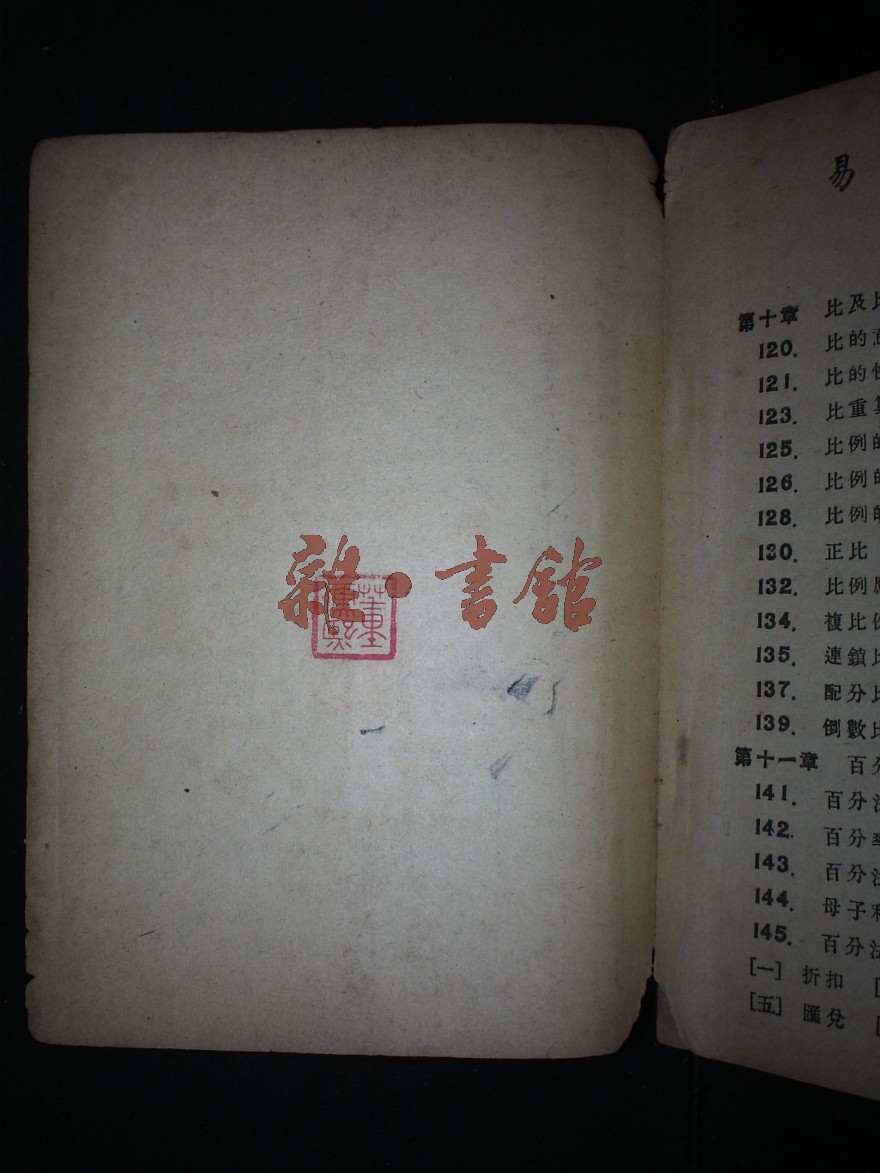 雜·書館
易
第十章 比及比
120. 比的意
121. 比的性
123. 比重算
125. 比例的
126. 比例的
128. 比例的
130. 正比
132. 比例應
134. 複比例
135. 連鎖比
137. 配分比
139. 倒數比
第十一章 百分
141. 百分法
142. 百分率
143. 百分法
144. 母子和
145. 百分法
[一] 折扣 [
[五] 匯兌 [